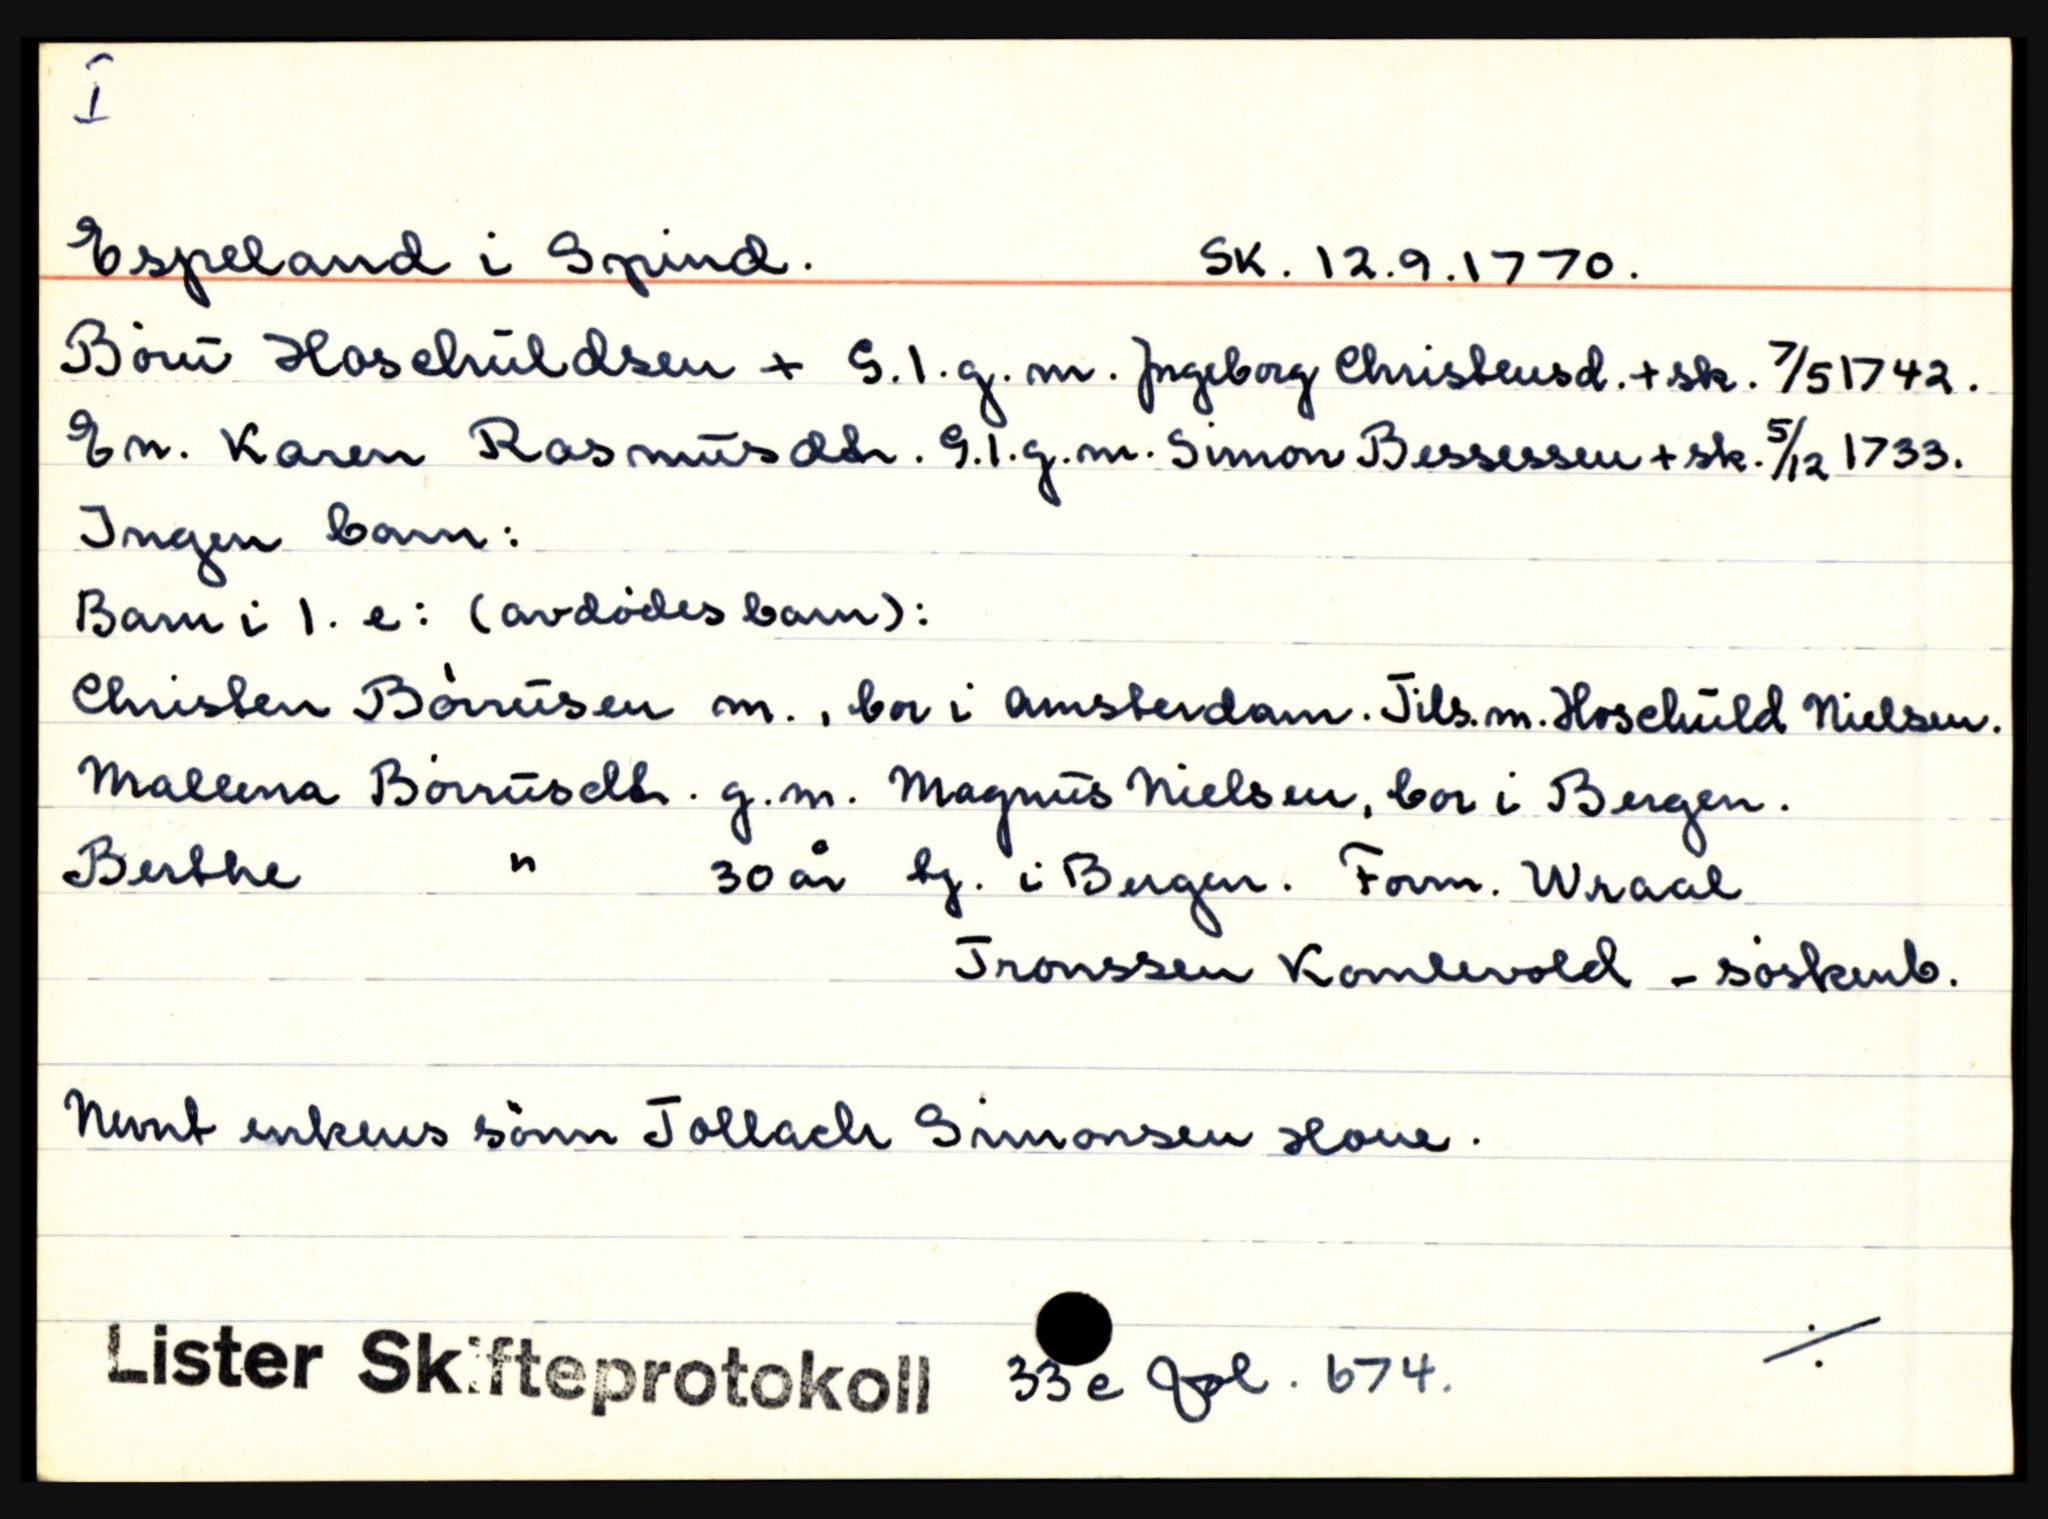 I
Espeland i Spind. SK. 12.9.1770.
Børu Hoschuldsen + G.1.g.m. Ingeborg Christensd. + sk. 7/5 1742.
En. Karen Rasmusdtr. G.1.g.m. Simon Bessessen + sk. 5/12 1733.
Ingen barn:
Barn i 1. e: (avdødes barn):
Christen Børrusen m., bor i Amsterdam. Tils. m. Hoschuld Nielsen.
Mallena Børrusdtr. g.m. Magnus Nielsen, bor i Bergen.
Berthe " 30 år tj. i Bergen. Form. Wraal
Tronssen Komlevold - søskenb.
Nevnt enkens sønn Tollach Simonsen Houe.
Lister Skifteprotokoll 33 e fol. 674.